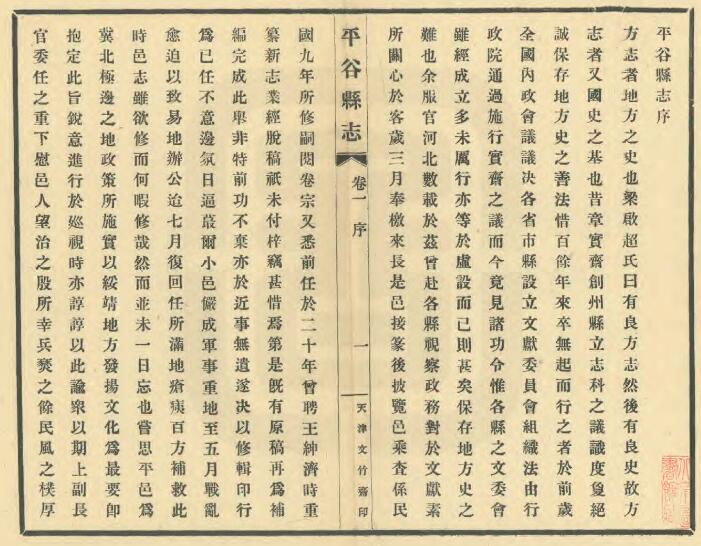 平谷縣志序
方志者地方之史也梁啟超氏曰有良方志然後有良史故方
志者又國史之基也昔章實齋創州縣立志科之議識度夐絕
誠保存地方史之善法惜百餘年來卒無起而行之者於前歲
全國內政會議議決各省市縣設立文獻委員會組織法由行
政院通過施行實齋之議而今竟見諸功令惟各縣之文委會
雖經成立多未厲行亦等於虛設而已則甚矣保存地方史之
難也余服官河北數載於茲曾赴各縣視察政務對於文獻素
所關心於客歲三月奉檄來長是邑接篆後披覽邑乘查係民
平谷縣志
卷一 序
一
天津文竹齋印
國九年所修嗣閱卷宗又悉前任於二十年曾聘王紳濟時重
纂新志業經脫稿祇未付梓竊甚惜焉第是既有原稿再為補
編完成此舉非特前功不棄亦於近事無遺遂決以修輯印行
為已任不意邊氛日逼蕞爾小邑儼成軍事重地至五月戰亂
愈迫以致易地辦公迨七月復回任所滿地瘡痍百方補救此
時邑志雖欲修而何暇修哉然而並未一日忘也嘗思平邑為
冀北極邊之地政策所施實以綏靖地方發揚文化為最要卽
抱定此旨銳意進行於廵視時亦諄諄以此諭衆以期上副長
官委任之重下慰邑人望治之殷所幸兵燹之餘民風之樸厚